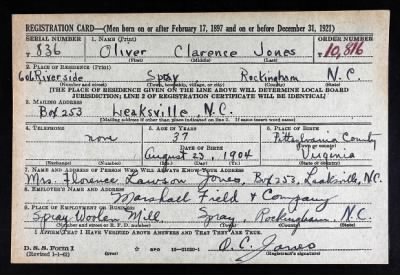 REGISTRATION CARD—(Men born on or after February 17, 1897 and on or before December 31, 1921)
SERIAL NUMBER 1. NAME (Print) ORDER NUMBER
T 836 Oliver Clarence Jones T 10,816
(First) (Middle) (Last)
2. PLACE OF RESIDENCE (Print)
606 Riverside Spray Rockingham N.C.
(Number and street) (Town, township, village, or city) (County) (State)
[THE PLACE OF RESIDENCE GIVEN ON THE LINE ABOVE WILL DETERMINE LOCAL BOARD
JURISDICTION; LINE 2 OF REGISTRATION CERTIFICATE WILL BE IDENTICAL]
3. MAILING ADDRESS
Box 253 Leaksville, N.C.
[Mailing address if other than place indicated on line 2. If same insert word same]
4. TELEPHONE 5. AGE IN YEARS 6. PLACE OF BIRTH
none 37 Pittsylvania County
DATE OF BIRTH (Town or county)
August 23, 1904 Virginia
(Exchange) (Number) (Mo.) (Day) (Yr.) (State or country)
7. NAME AND ADDRESS OF PERSON WHO WILL ALWAYS KNOW YOUR ADDRESS
Mrs. Florence Lawson Jones, Box 253, Leaksville, N.C.
8. EMPLOYER'S NAME AND ADDRESS
Marshall Field & Company
9. PLACE OF EMPLOYMENT OR BUSINESS
Spray Woolen Mill Spray, Rockingham N.C.
(Number and street or R. F. D. number) (Town) (County) (State)
I AFFIRM THAT I HAVE VERIFIED ABOVE ANSWERS AND THAT THEY ARE TRUE.
D. S. S. Form 1 GPO 16-21630-1 O. C. Jones
(Revised 1-1-42) (Registrant's signature)